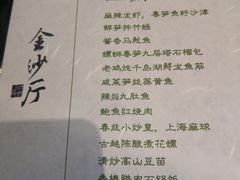 金沙厅
麻辣龙虾，春笋鱼籽沙律
鲜笋拌竹蛏
酱香马鲛鱼
螺蛳春笋九层塔石榴包
老鸡炖千岛湖鲟龙鱼筋
咸菜笋丝蒸黄鱼
辣焖九肚鱼
鲍鱼红烧肉
春韭小炒皇，上海麻球
古越陈酿煮花螺
清炒高山豆苗
春椿腊肉石锅饭